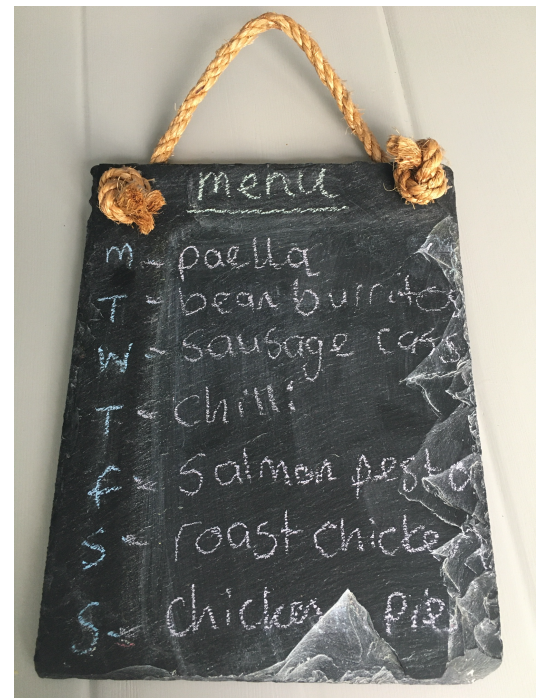 menu
M - paella
T - bean burrito
W - sausage cass
T - chilli
F - salmon pesto
S - roast chicke
S - chicken pie